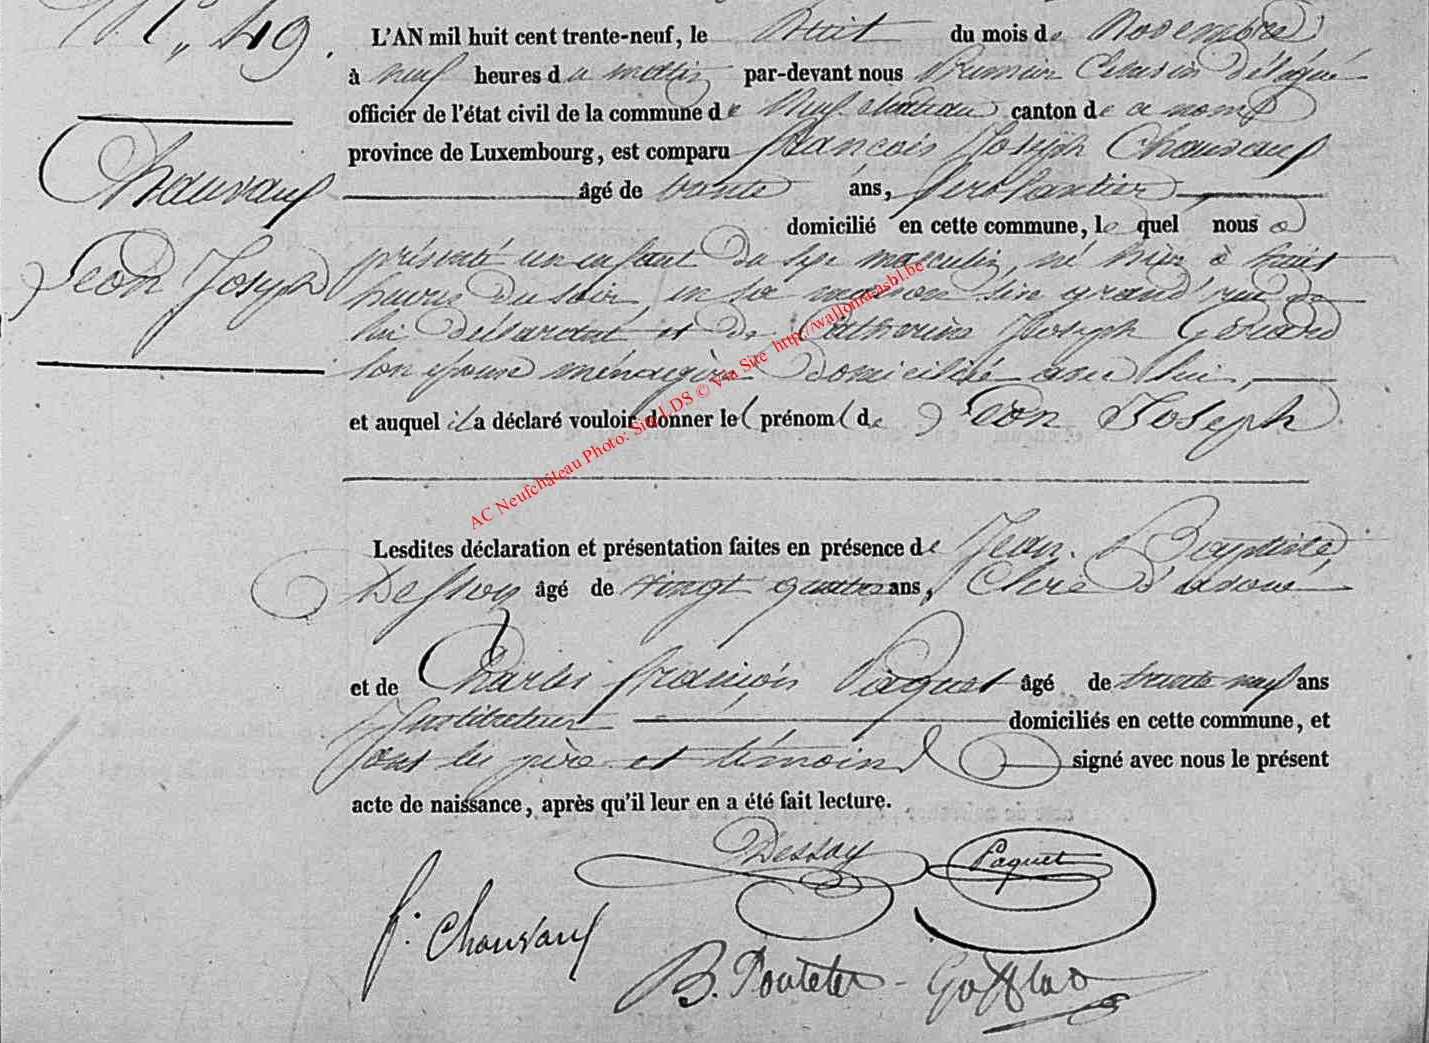 N.º 49.
L'AN mil huit cent trente-neuf, le huit du mois de Novembre
à neuf heures du matin par-devant nous délégué
officier de l'état civil de la commune de Neufchâteau canton de ce nom
province de Luxembourg, est comparu françois Joseph Chauvaux
âgé de trente ans, ferblantier
domicilié en cette commune, lequel nous a
Chauvaux
Léon Joseph
présenté un enfant du sexe masculin, né hier à huit
heures du soir en sa maison sise grand'rue de
lui déclarant et de Catherine Joseph Gérard
son épouse ménagère domiciliée avec lui,
et auquel il a déclaré vouloir donner les prénoms de Léon Joseph
Lesdites déclaration et présentation faites en présence de Jean Baptiste
Dessoy âgé de vingt quatre ans, Clerc d'avoué
et de Charles françois Paquet âgé de trente neuf ans
Instituteur domiciliés en cette commune, et
ont les père et témoins signé avec nous le présent
acte de naissance, après qu'il leur en a été fait lecture.
Dessoy Paquet
f. Chauvaux
B.
AC Neufchâteau Photo: Site LDS © Via Site http://wallonia-asbl.be